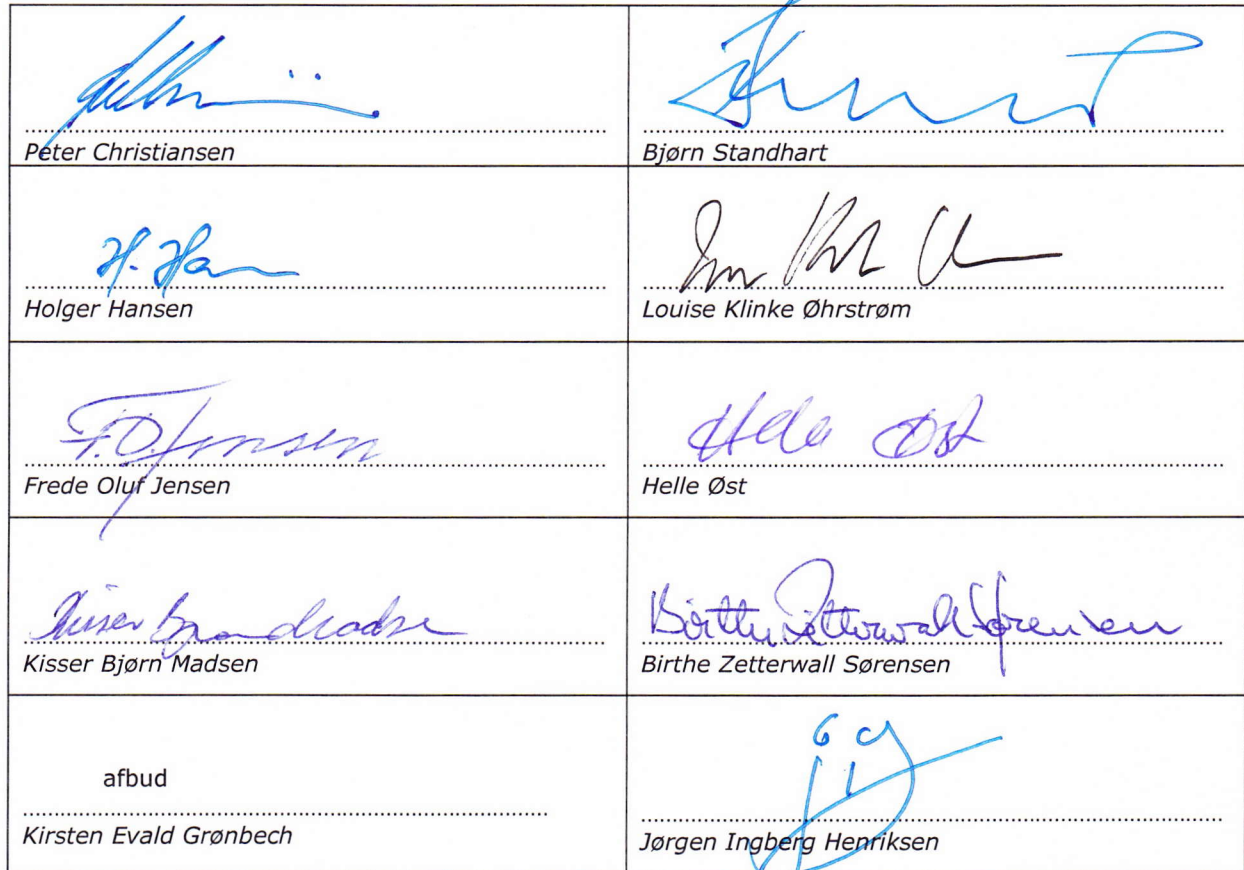 Peter Christiansen
Bjørn Standhart
H. Ha
Holger Hansen
Louise Klinke Øhrstrøm
F.O. Jensen
Frede Oluf Jensen
Helle Øst
Helle Øst
Kisser
Kisser Bjørn Madsen
Birthe Zetterwall Sørensen
Birthe Zetterwall Sørensen
afbud
Kirsten Evald Grønbech
Jørgen Ingberg Henriksen